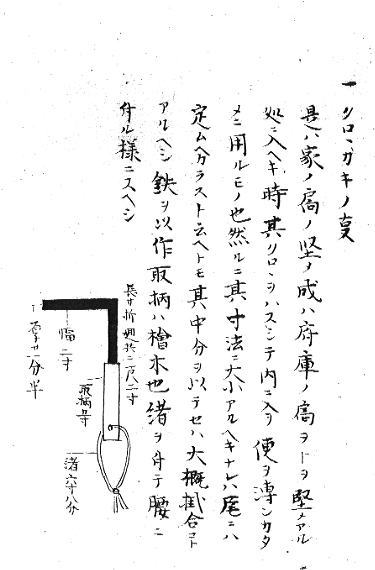 一 クロヽガキノ事
是ハ家ノ扃ノ堅メ成ハ府庫ノ扃ヲトヲ堅メアル
処ニ入ヘキ時其クロヽヲハスシテ内ニ入ラ便ヲ溥ンカタ
メニ用ルモノ也然ルニ其寸法ニ大小アルヘキナレハ尾ニハ
定ムヘカラスト云ヘトモ其中分ヲ以テセハ大概掛合コト
アルヘシ鉄ヲ以作取柄ハ檜木也緒ヲ付テ腰ニ
付ル様ニスヘシ
長サ折廻於二尺二寸
幅二寸
厚サ一分半
取柄五寸
緒六寸八分